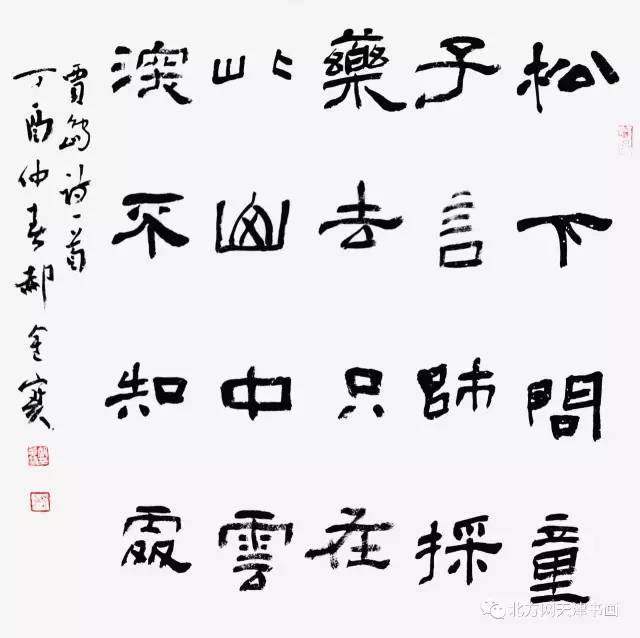 松下問童
子言師採
藥去只在
此山中雲
深不知處
賈島詩一首
丁酉仲春郝金寶
北方网天津书画